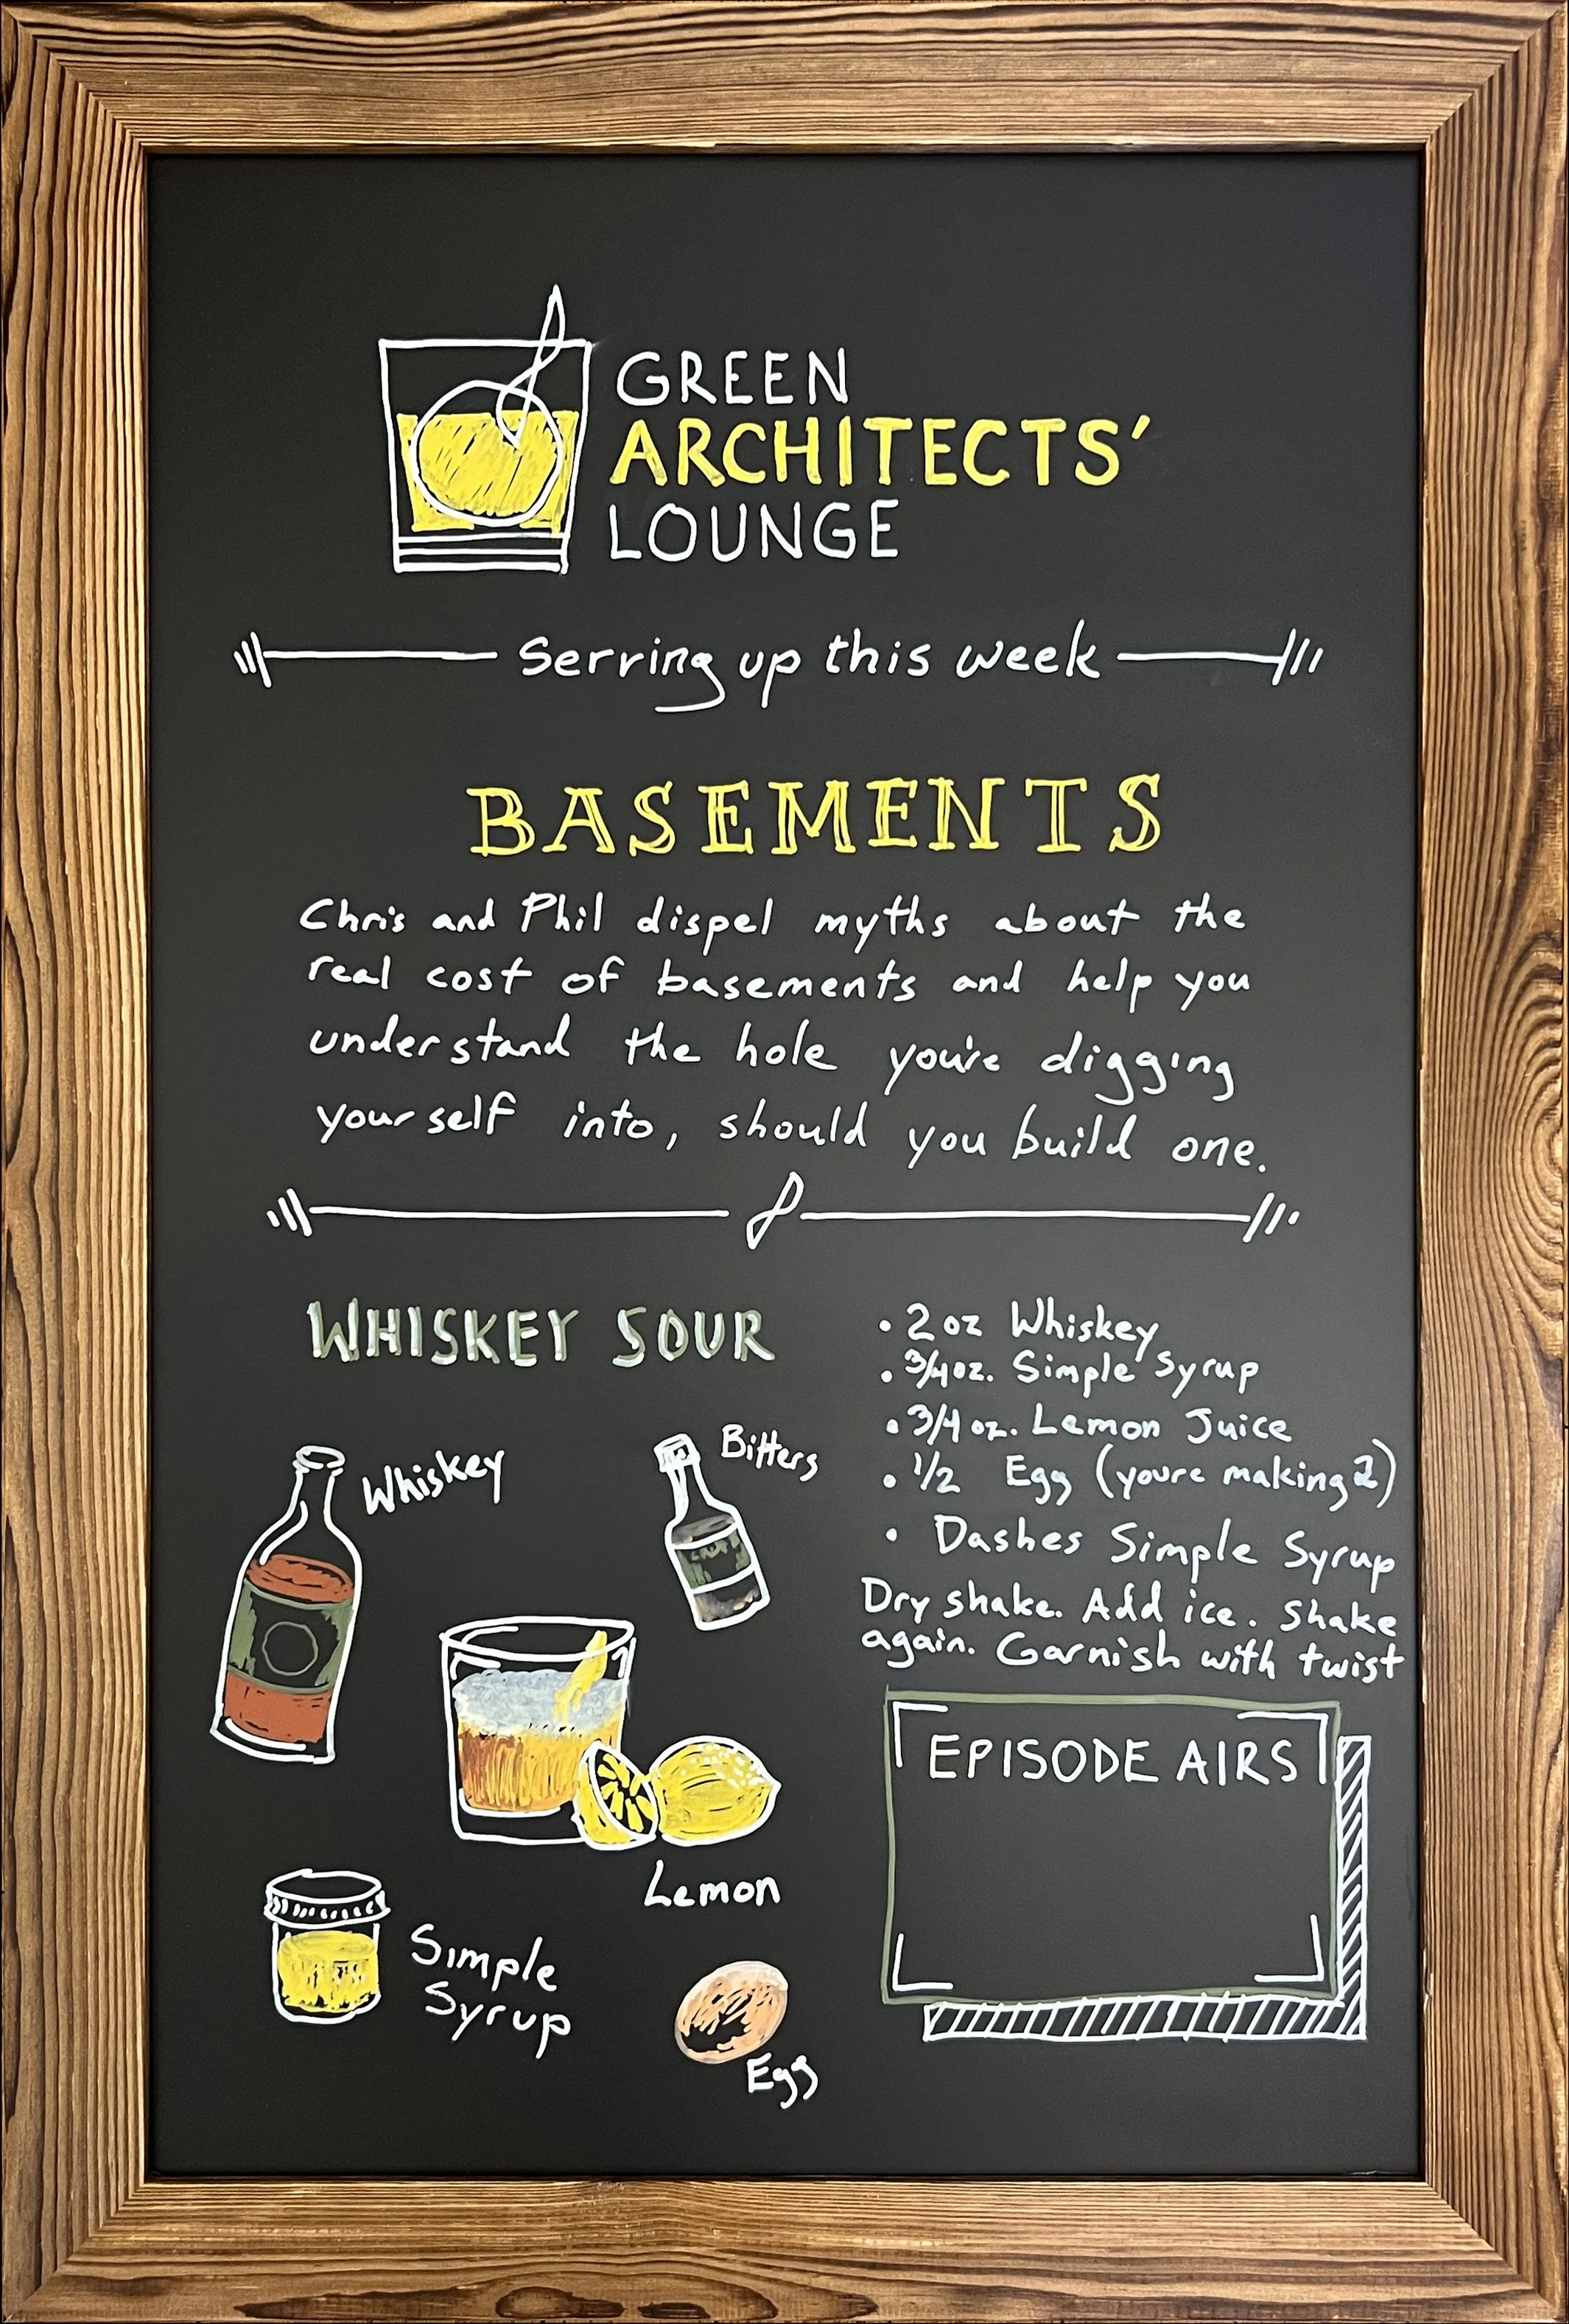 GREEN
ARCHITECTS'
LOUNGE
Serving up this week
BASEMENTS
Chris and Phil dispel myths about the
real cost of basements and help you
understand the hole you're digging
yourself into, should you build one.
WHISKEY SOUR
Whiskey
Bitters
Lemon
Simple
Syrup
Egg
• 2 oz Whiskey
• 3/4 oz. Simple Syrup
• 3/4 oz. Lemon Juice
• 1/2 Egg (youre making 2)
• Dashes Simple Syrup
Dry shake. Add ice. Shake
again. Garnish with twist
EPISODE AIRS